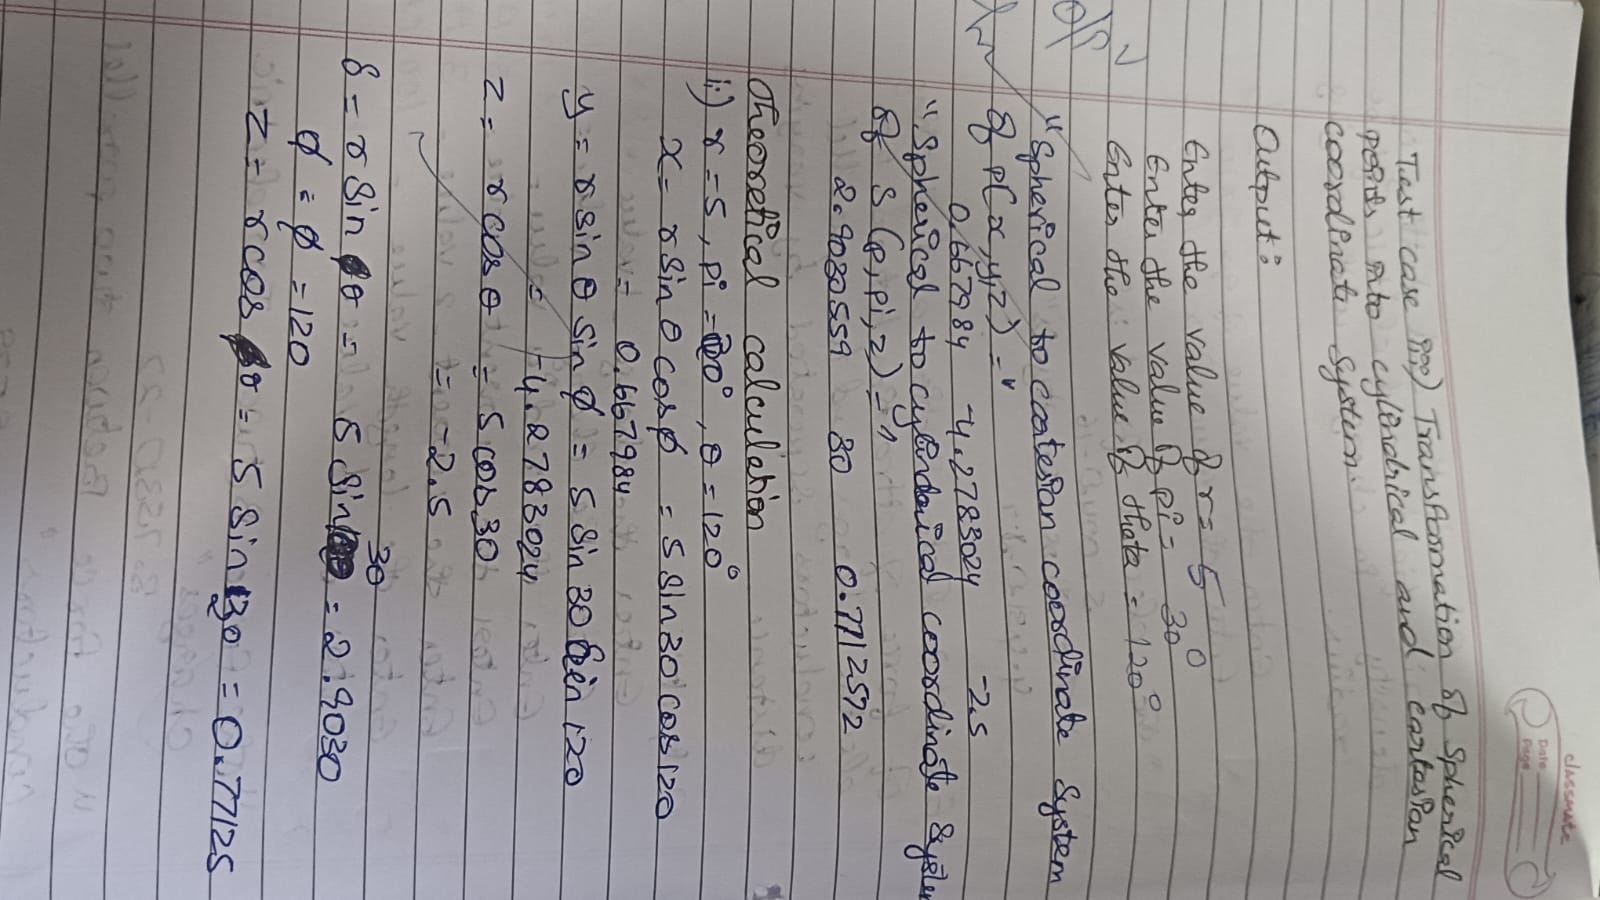 classmate
Date
Page
Test case iii) Transformation of Spherical
points into cylindrical and cartesian
coordinate system
Output:
Enter the value of r = 5
Enter the value of pi = 30°
Enter the value of theta = 120°
"Spherical to cartesian coordinate system
of P(x,y,z) = "
0.667984 -4.2783024 -2.5
"Spherical to cylindrical coordinate system
of S (ρ, pi, z) = "
2.9030559 30 0.7712572
O/P
Theoretical calculation
i.) r = 5, pi = 30°, θ = 120°
x = r sin θ cos φ = 5 sin 30 cos 120
= 0.667984
y = r sin θ sin φ = 5 sin 30 sin 120
= -4.2783024
z = r cos θ = 5 cos 30
= -2.5
δ = r sin θ = 5 sin 30 = 2.9030
φ = φ = 120
z = r cos θ = 5 sin = 0.77125